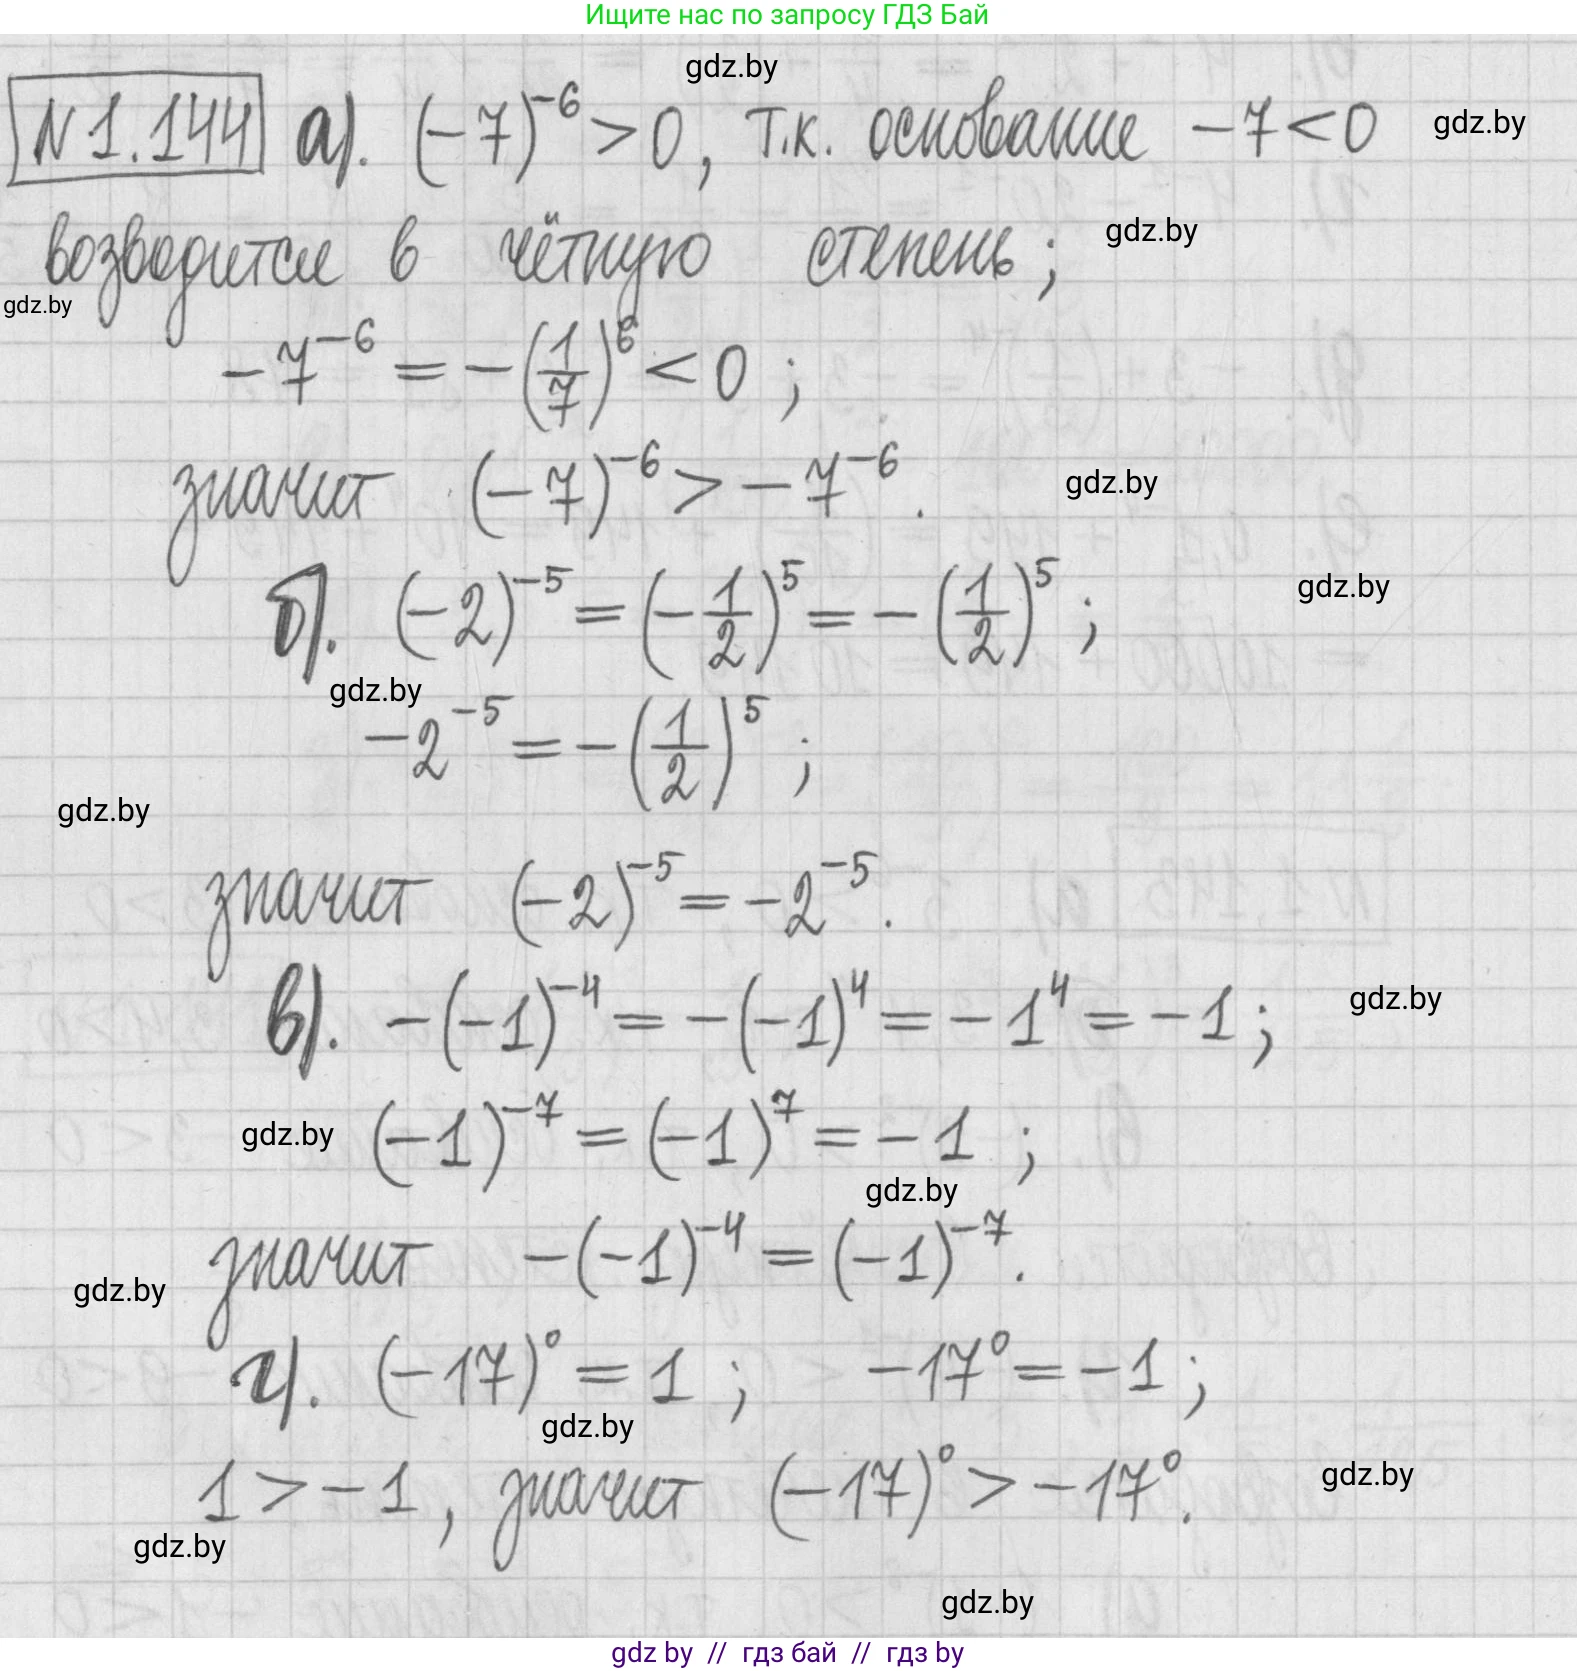 Ищите нас по запросу ГДЗ Бай
gdz.by
№1.144 а). (-7)^{-6} > 0, т.к. основание -7 < 0 gdz.by
возводится в чётную степень; gdz.by
gdz.by
-7^{-6} = -(1/7)^6 < 0 ;
значит (-7)^{-6} > -7^{-6}. gdz.by
б). (-2)^{-5} = (-1/2)^5 = -(1/2)^5 ; gdz.by
gdz.by
-2^{-5} = -(1/2)^5 ;
gdz.by
значит (-2)^{-5} = -2^{-5}.
в). -(-1)^{-4} = -(-1)^4 = -1^4 = -1 ; gdz.by
gdz.by (-1)^{-7} = (-1)^7 = -1 ;
gdz.by
значит -(-1)^{-4} = (-1)^{-7}.
gdz.by
г). (-17)^0 = 1 ; -17^0 = -1 ;
gdz.by
1 > -1, значит (-17)^0 > -17^0. gdz.by
gdz.by
gdz.by
gdz by // гдз бай // гдз by